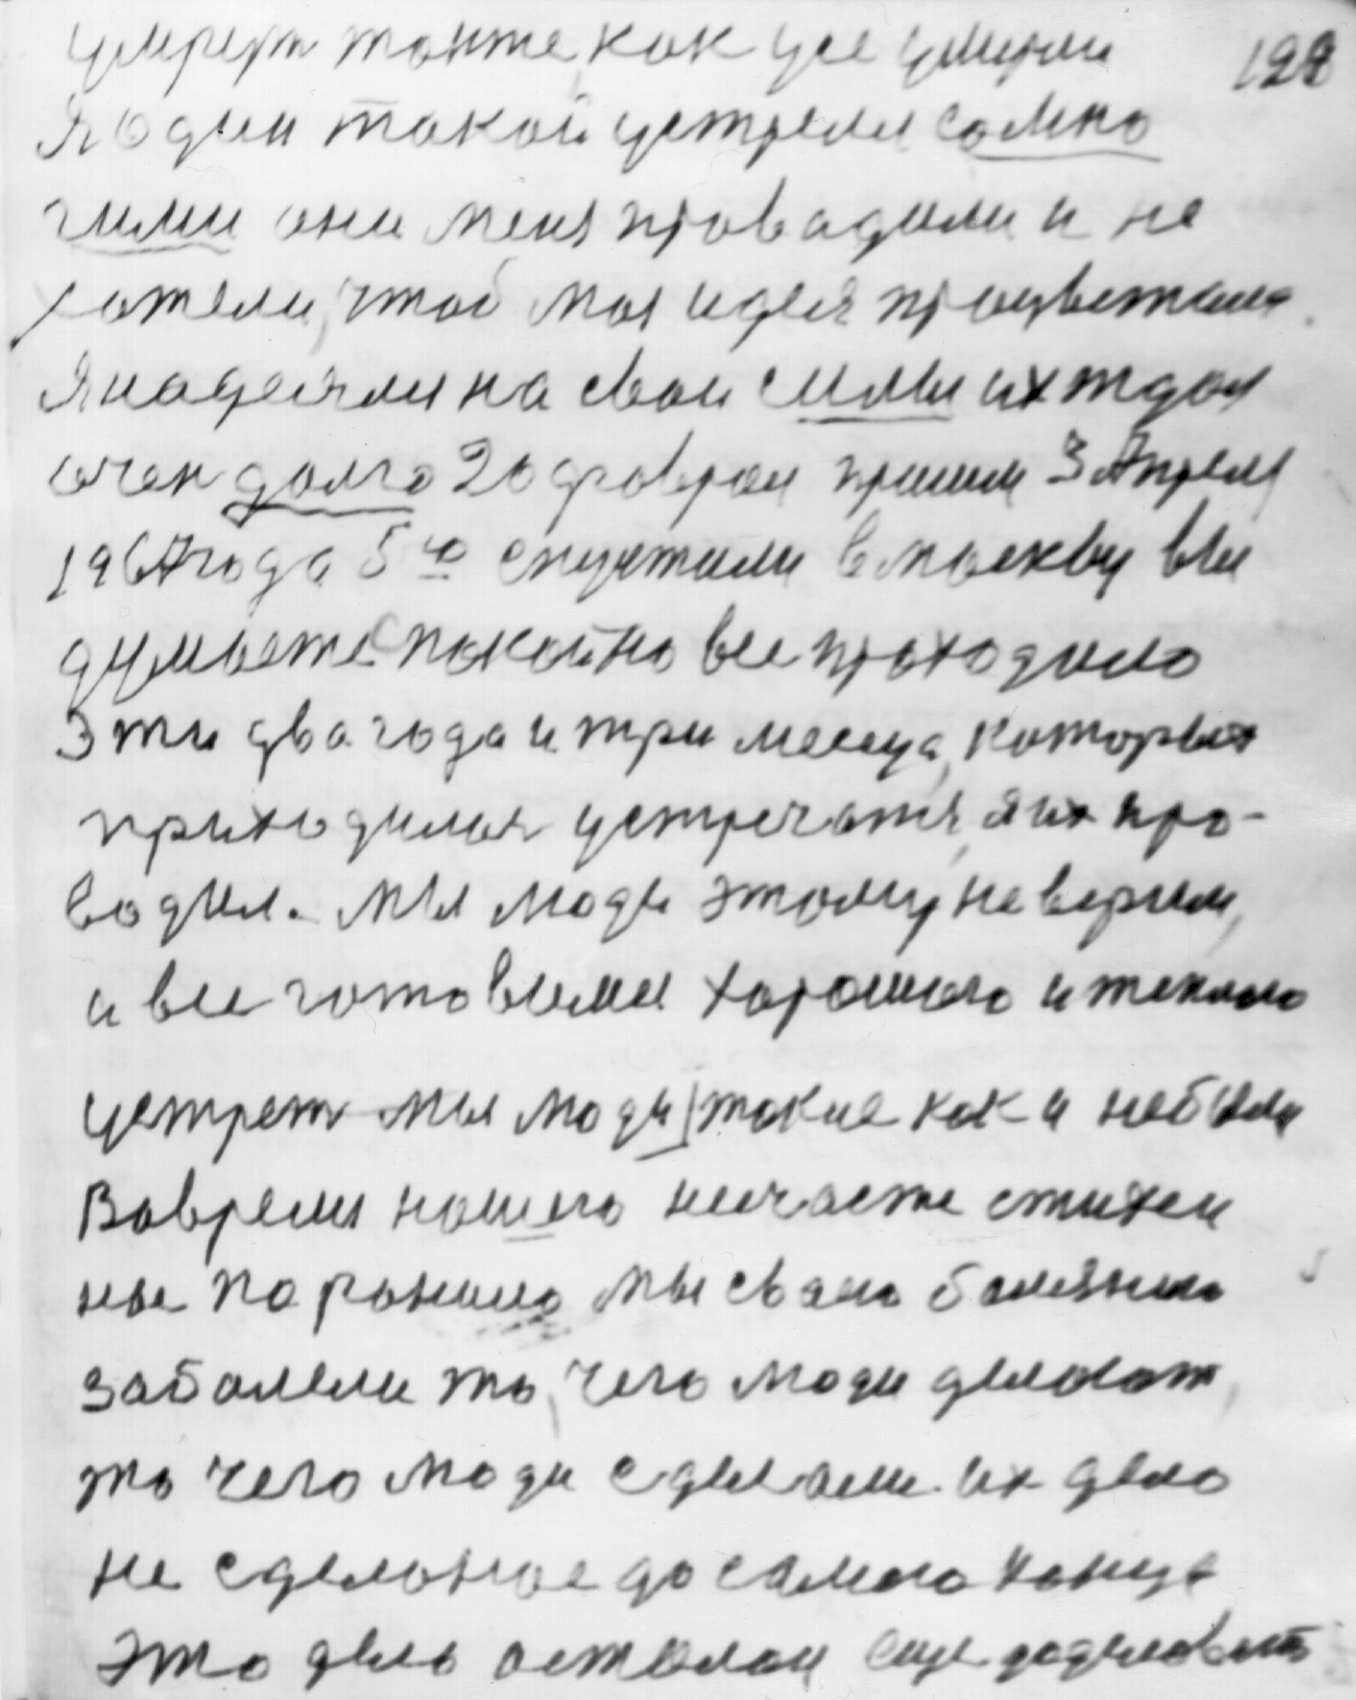 умрет тожте, как усе умирли 128
Я один такой устрелся со мно
гими они меня провадили и не
хотели, чтоб моя идея процветала.
Я надеялся на свои силы их ждал
очен долго 20 феврал пришли 3 Апреля
1967 года 5го спустили в москву вы
думаете спокойно все проходило
Эти два года и три месеца, которых
приходился устречатя, я их про-
водил. Мы люди этому не верим,
а все готовимся хорошего и теплого
устрет мы люди такие как и небыли
Вовремя нашего несчасте стихеи
ные поранило мы сваею болезнию
заболели то, чего люди делоют,
то чего люди сделали. их дело
не сделоное до самого конца
Это дело осталой еще доделовать